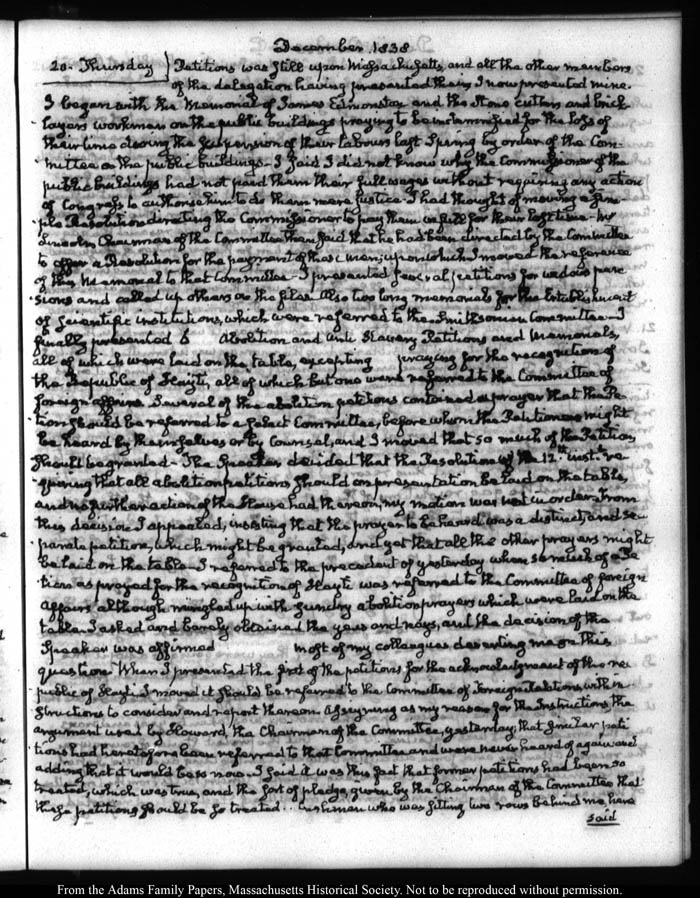 December 1838
20. Thursday Petitions was still upon Massachusetts, and all the other members
of the delegation having presented theirs I now presented mine.
I began with the Memorial of James Edmonston and the Stone cutters and brick
layers workmen on the public buildings praying to be indemnified for the loss of
their time during the suspension of their labours last Spring by order of the Com-
mittee on the public buildings. I said I did not know why the Commissioner of the
public buildings had not paid them their full wages without requiring any action
of Congress to authorise him to do them mere justice. I had thought of moving a sim-
ple Resolution directing the Commissioner to pay them in full for their lost time. Mr
Lincoln Chairman of the Committee then said that he had been directed by the Committee
to offer a Resolution for the payment of these men; upon which I moved the reference
of this Memorial to that Committee. I presented several petitions for widows pen
sions and called up others on the files. Also two long memorials for the Establishment
of Scientific institutions, which were referred to the Smithsonian Committee. I
finally presented Abolition and anti Slavery Petitions and Memorials,
all of which were laid on the table, excepting praying for the recognition of
the Republic of Hayti, all of which but one were referred to the Committee of
foreign affairs. Several of the abolition petitions contained a prayer that the Pe-
tion should be referred to a select Committee, before whom the Petitioners might
be heard by themselves or by Counsel, and I moved that so much of the Petition
should be granted. The Speaker decided that the Resolution of the 12th inst. re-
quiring that all abolition petitions should on presentation be laid on the table,
and no further action of the House had thereon, my motion was not in order. From
this decision I appealed, insisting that the prayer to be heard was a distinct, and se-
parate petition, which might be granted, and yet that all the other prayers might
be laid on the table. I referred to the precedent of yesterday when so much of a Pe-
tion as prayed for the recognition of Hayti was referred to the Committee of foreign
affairs although mingled up with sundry abolition prayers which were laid on the
table. I asked and barely obtained the yeas and nays, and the decision of the
Speaker was affirmed most of my colleagues deserting me on this
question. When I presented the first of the petitions for the acknowledgment of the re-
public of Hayti I moved it should be referred to the Committee of Foreign Relations with in
structions to consider and report thereon. Assigning as my reason for the Instructions the
argument used by Howard, the Chairman of the Committee, yesterday; that similar peti
tions had heretofore been referred to that Committee and were never heard of again and
adding that it would be so now. I said it was this fact that former petitions had been so
treated, which was true, and the sort of pledge, given by the Chairman of the Committee that
these petitions should be so treated.. Cushman who was sitting two rows behind me here
said
From the Adams Family Papers, Massachusetts Historical Society. Not to be reproduced without permission.